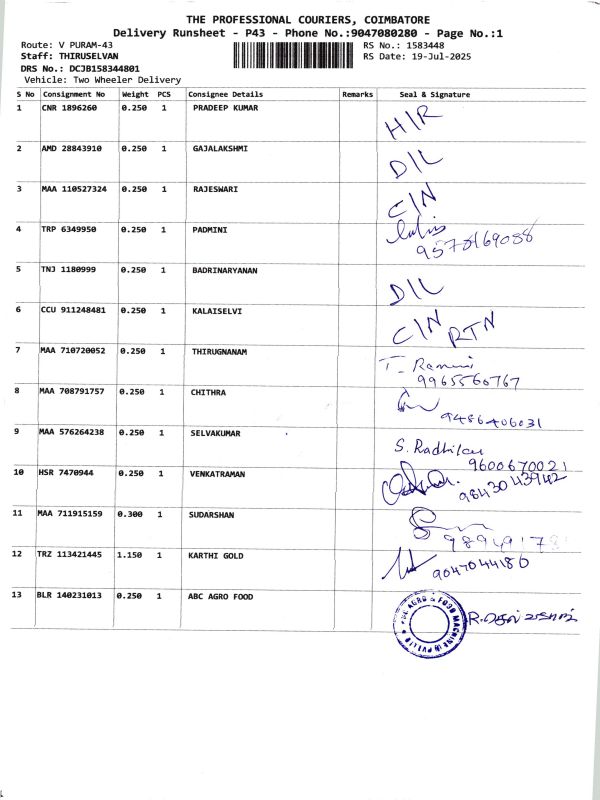 THE PROFESSIONAL COURIERS, COIMBATORE
Delivery Runsheet - P43 - Phone No.:9047080280 - Page No.:1
Route: V PURAM-43 RS No.: 1583448
Staff: THIRUSELVAN RS Date: 19-Jul-2025
DRS No.: DCJB158344801
Vehicle: Two Wheeler Delivery
S No Consignment No Weight PCS Consignee Details Remarks Seal & Signature
1 CNR 1896260 0.250 1 PRADEEP KUMAR H/R
2 AMD 28843910 0.250 1 GAJALAKSHMI D/L
3 MAA 110527324 0.250 1 RAJESWARI C/N
4 TRP 6349950 0.250 1 PADMINI
9578169088
5 TNJ 1180999 0.250 1 BADRINARYANAN D/L
6 CCU 911248481 0.250 1 KALAISELVI C/N RTN
7 MAA 710720052 0.250 1 THIRUGNANAM T.
9965560767
8 MAA 708791757 0.250 1 CHITHRA
9486406031
9 MAA 576264238 0.250 1 SELVAKUMAR S.
9600670021
10 HSR 7470944 0.250 1 VENKATRAMAN
9843043942
11 MAA 711915159 0.300 1 SUDARSHAN
12 TRZ 113421445 1.150 1 KARTHI GOLD
9047044186
13 BLR 140231013 0.250 1 ABC AGRO FOOD AGRO & FOOD MACHINE R.